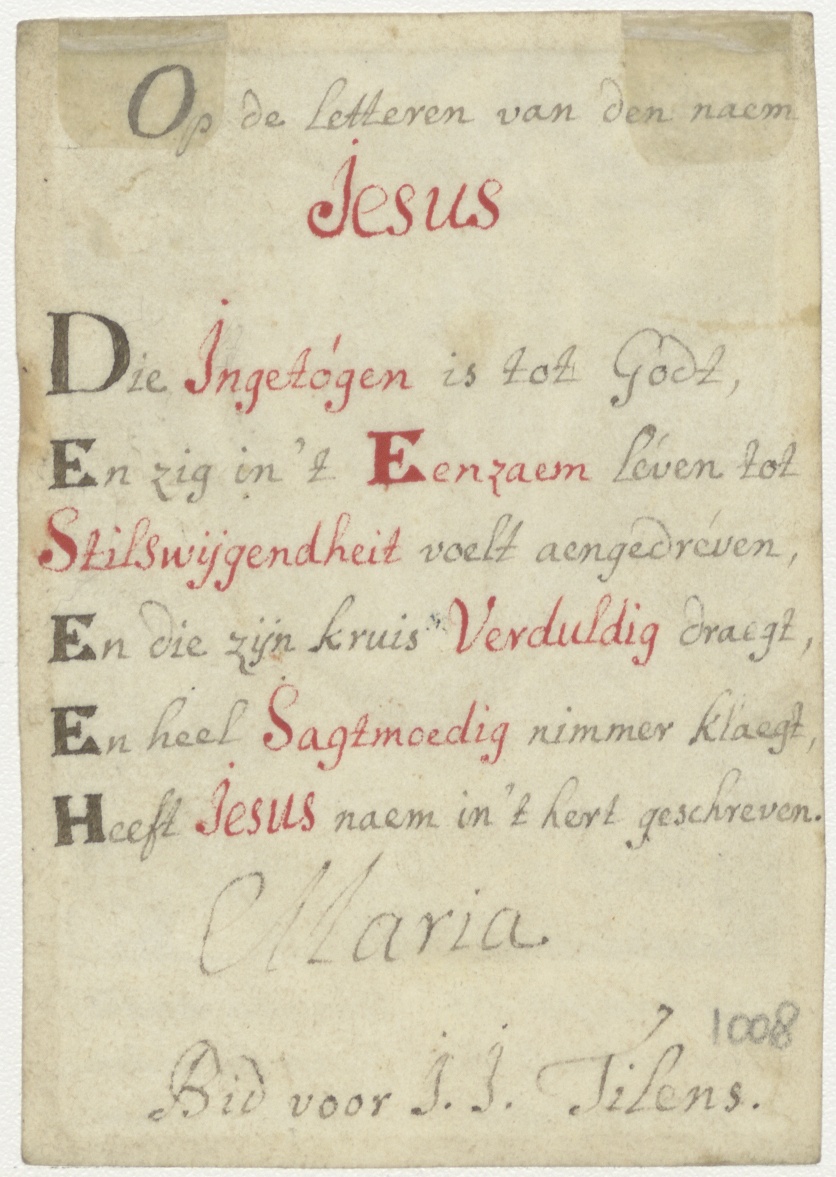 Op de letteren van den naem
Jesus
Die Ingetógen is tot Gódt,
En zig in't Eenzaem léven tot
Stilswijgendheit voelt aengedréven,
En die zijn kruis Verduldig draegt,
En heel Sagtmoedig nimmer klaegt,
Heeft Jesus naem in't hert geschreven.
Maria.
1008
Bid voor J. J. Tilens.